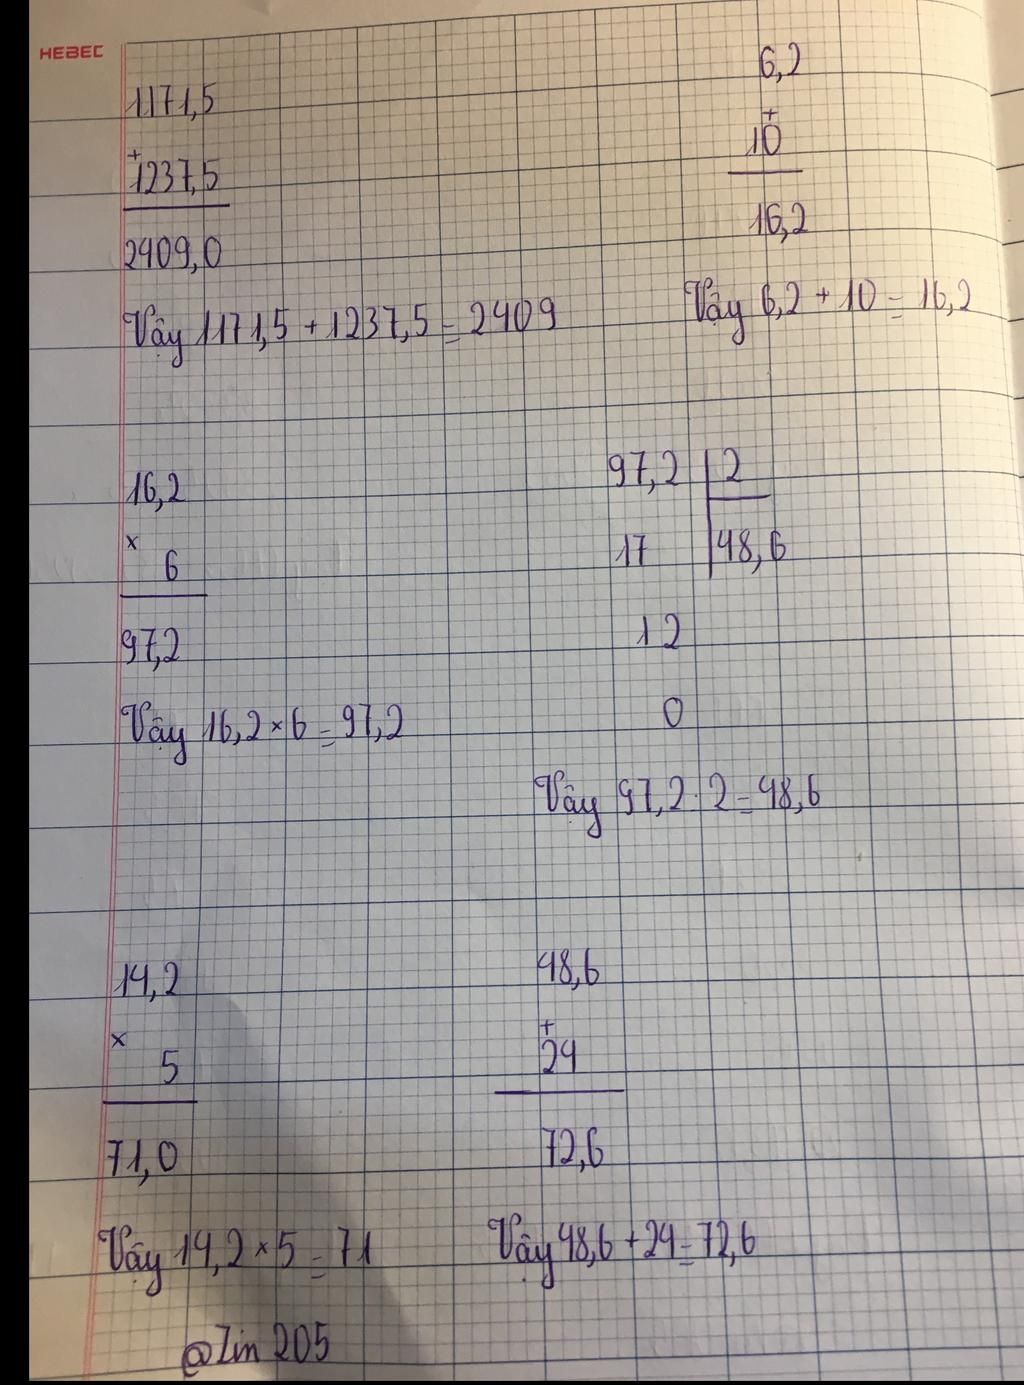 HEBEC
1171,5
+
1237,5
2409,0
Vậy 1171,5 + 1237,5 = 2409
6,2
+
10
16,2
Vậy 6,2 + 10 = 16,2
16,2
×
6
97,2
Vậy 16,2 × 6 = 97,2
97,2 2
17 48,6
12
0
Vậy 97,2 : 2 = 48,6
14,2
×
5
71,0
Vậy 14,2 × 5 = 71
48,6
+
24
72,6
Vậy 48,6 + 24 = 72,6
@Zin 205